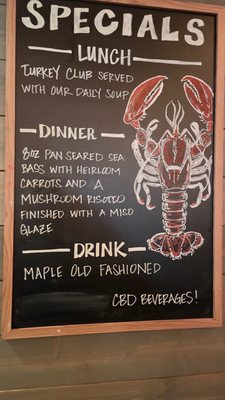 SPECIALS
LUNCH
TURKEY CLUB SERVED
WITH OUR DAILY SOUP
DINNER
8OZ PAN SEARED SEA
BASS WITH HEIRLOOM
CARROTS AND A
MUSHROOM RISOTTO
FINISHED WITH A MISO
GLAZE
DRINK
MAPLE OLD FASHIONED
CBD BEVERAGES!